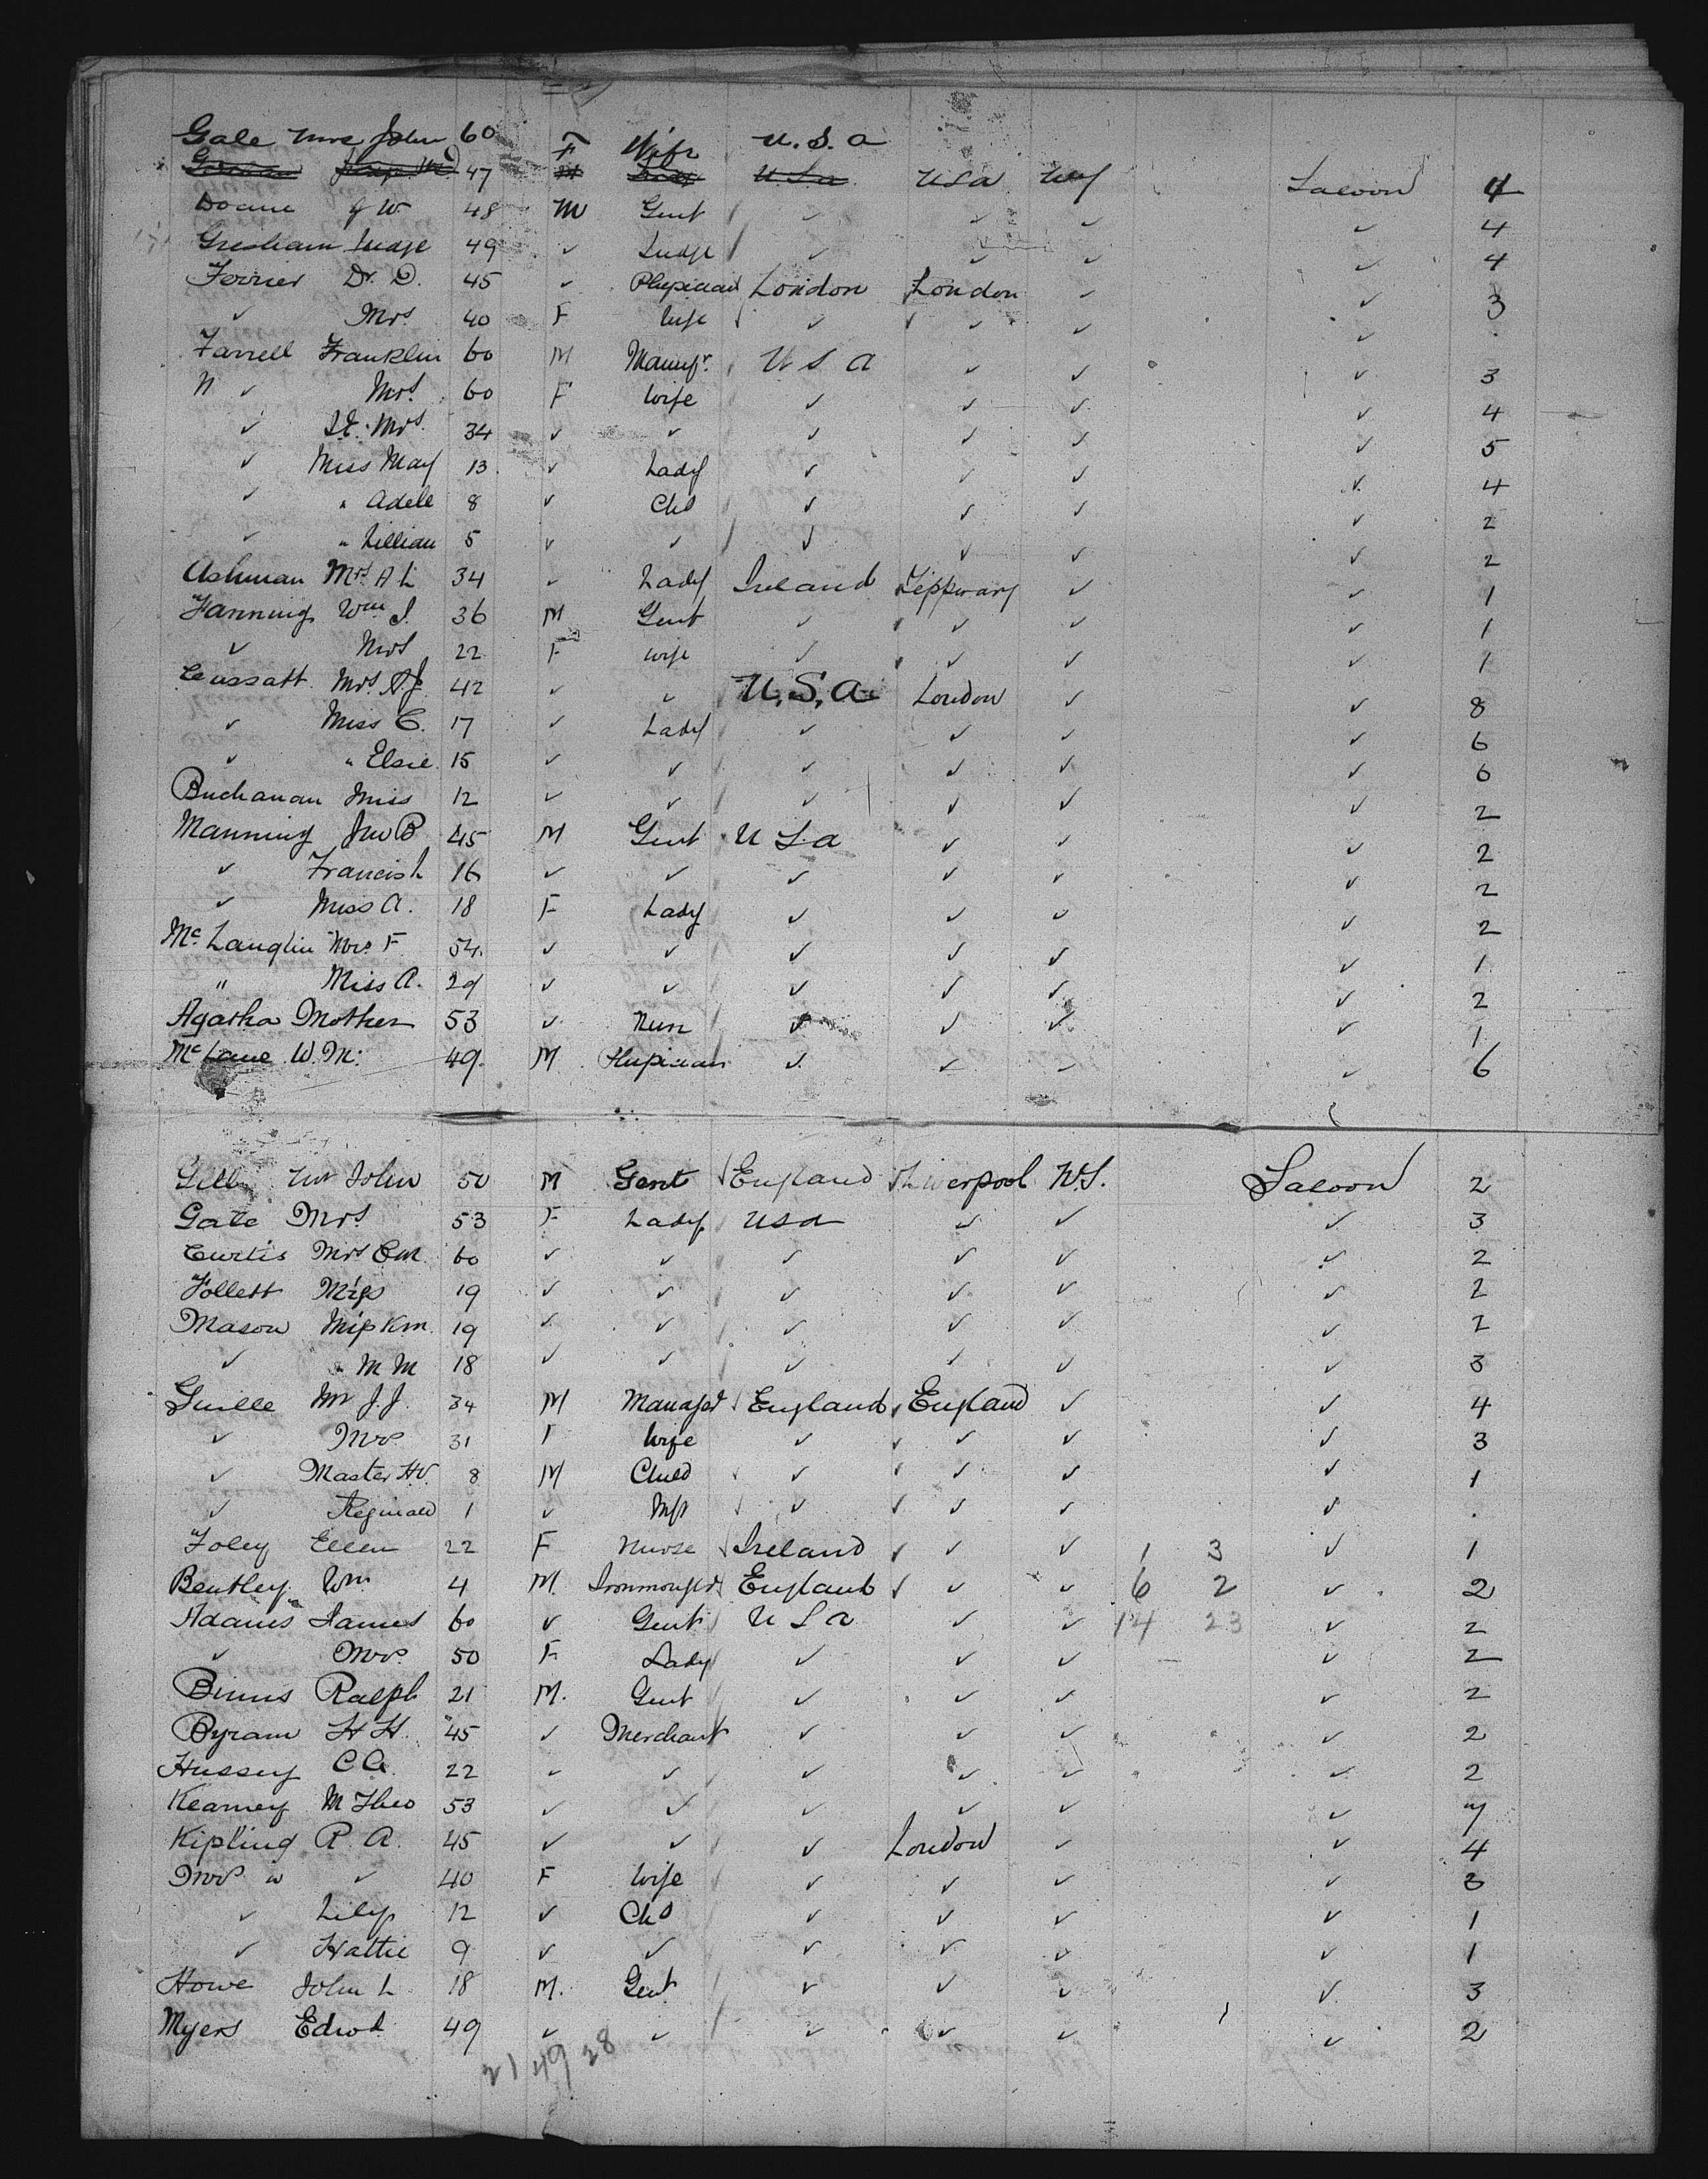 Gale Mrs John 60 F Wife U.S.A
47 M U.S.A USA Saloon 4
Doane G W 48 M Gent ✓ ✓ ✓ ✓ 4
Gresham Judge 49 ✓ Judge ✓ ✓ ✓ ✓ 4
Ferrier Dr. D. 45 ✓ Physician London London ✓ ✓ 3
✓ Mrs 40 F Wife ✓ ✓ ✓ ✓ .
Farrell Franklin 60 M Manufr. U S A ✓ ✓ ✓ 3
" ✓ Mrs. 60 F Wife ✓ ✓ ✓ ✓ 4
✓ Mrs. 34 ✓ ✓ ✓ ✓ ✓ ✓ 5
✓ Miss May 13 ✓ Lady ✓ ✓ ✓ ✓ 4
✓ " Adele 8 ✓ Chd ✓ ✓ ✓ ✓ 2
✓ " Lillian 5 ✓ ✓ ✓ ✓ ✓ ✓ 2
Ashman Mrs A L 34 ✓ Lady Ireland Tipperary ✓ ✓ 1
Fanning Wm J. 36 M Gent ✓ ✓ ✓ ✓ 1
✓ Mrs 22 F Wife ✓ ✓ ✓ ✓ 1
Cassatt Mrs A.J. 42 ✓ ✓ U.S.A London ✓ ✓ 8
✓ Miss C. 17 ✓ Lady ✓ ✓ ✓ ✓ 6
✓ " Elsie 15 ✓ ✓ ✓ ✓ ✓ ✓ 6
Buchanan Miss 12 ✓ ✓ ✓ ✓ ✓ ✓ 2
Manning Jno B 45 M Gent U S A ✓ ✓ ✓ 2
✓ Francis L 16 ✓ ✓ ✓ ✓ ✓ ✓ 2
✓ Miss A. 18 F Lady ✓ ✓ ✓ ✓ 2
Mc Lauglin Mrs. F. 54. ✓ ✓ ✓ ✓ ✓ ✓ 1
" Miss A. 29 ✓ ✓ ✓ ✓ ✓ ✓ 2
Agatha Mother 53 ✓ Nun ✓ ✓ ✓ ✓ 1
Mc Lane W. M. 49. M Physician ✓ ✓ ✓ ✓ 6
Mr John 50 M Gent England Liverpool N.Y. Saloon 2
Gate Mrs 53 F Lady USA ✓ ✓ ✓ 3
Curtis Mrs C.M. 60 ✓ ✓ ✓ ✓ ✓ ✓ 2
Follett Miss 19 ✓ ✓ ✓ ✓ ✓ ✓ 2
Mason Miss K M 19 ✓ ✓ ✓ ✓ ✓ ✓ 2
✓ " M M 18 ✓ ✓ ✓ ✓ ✓ ✓ 3
Guille Mr J.J. 34 M Manager England England ✓ ✓ 4
✓ Mrs. 31 F Wife ✓ ✓ ✓ ✓ 3
✓ Master H.V. 8 M Child ✓ ✓ ✓ ✓ 1
✓ Reginald 1 ✓ Inft ✓ ✓ ✓ ✓ .
Foley Ellen 22 F Nurse Ireland ✓ ✓ 1 3 ✓ 1
Bentley Wm 4 M Ironmonger England ✓ ✓ 6 2 ✓ 2
Adams James 60 ✓ Gent U S A ✓ ✓ 14 23 ✓ 2
✓ Mrs. 50 F Lady ✓ ✓ ✓ ✓ 2
Binns Ralph 21 M. Gent ✓ ✓ ✓ ✓ 2
Byram H H. 45 ✓ Merchant ✓ ✓ ✓ ✓ 2
Hussey C A. 22 ✓ ✓ ✓ ✓ ✓ ✓ 2
Kearney M Theo 53 ✓ ✓ ✓ ✓ ✓ ✓ 7
Kipling R. A. 45 ✓ ✓ ✓ London ✓ ✓ 4
Mrs ✓ 40 F Wife ✓ ✓ ✓ ✓ 3
✓ Lily 12 ✓ Chd ✓ ✓ ✓ ✓ 1
✓ Hattie 9 ✓ ✓ ✓ ✓ ✓ ✓ 1
Howe John L 18 M. Gent ✓ ✓ ✓ ✓ 3
Myers Edwd 49 ✓ ✓ ✓ ✓ ✓ ✓ 2
21 49 28